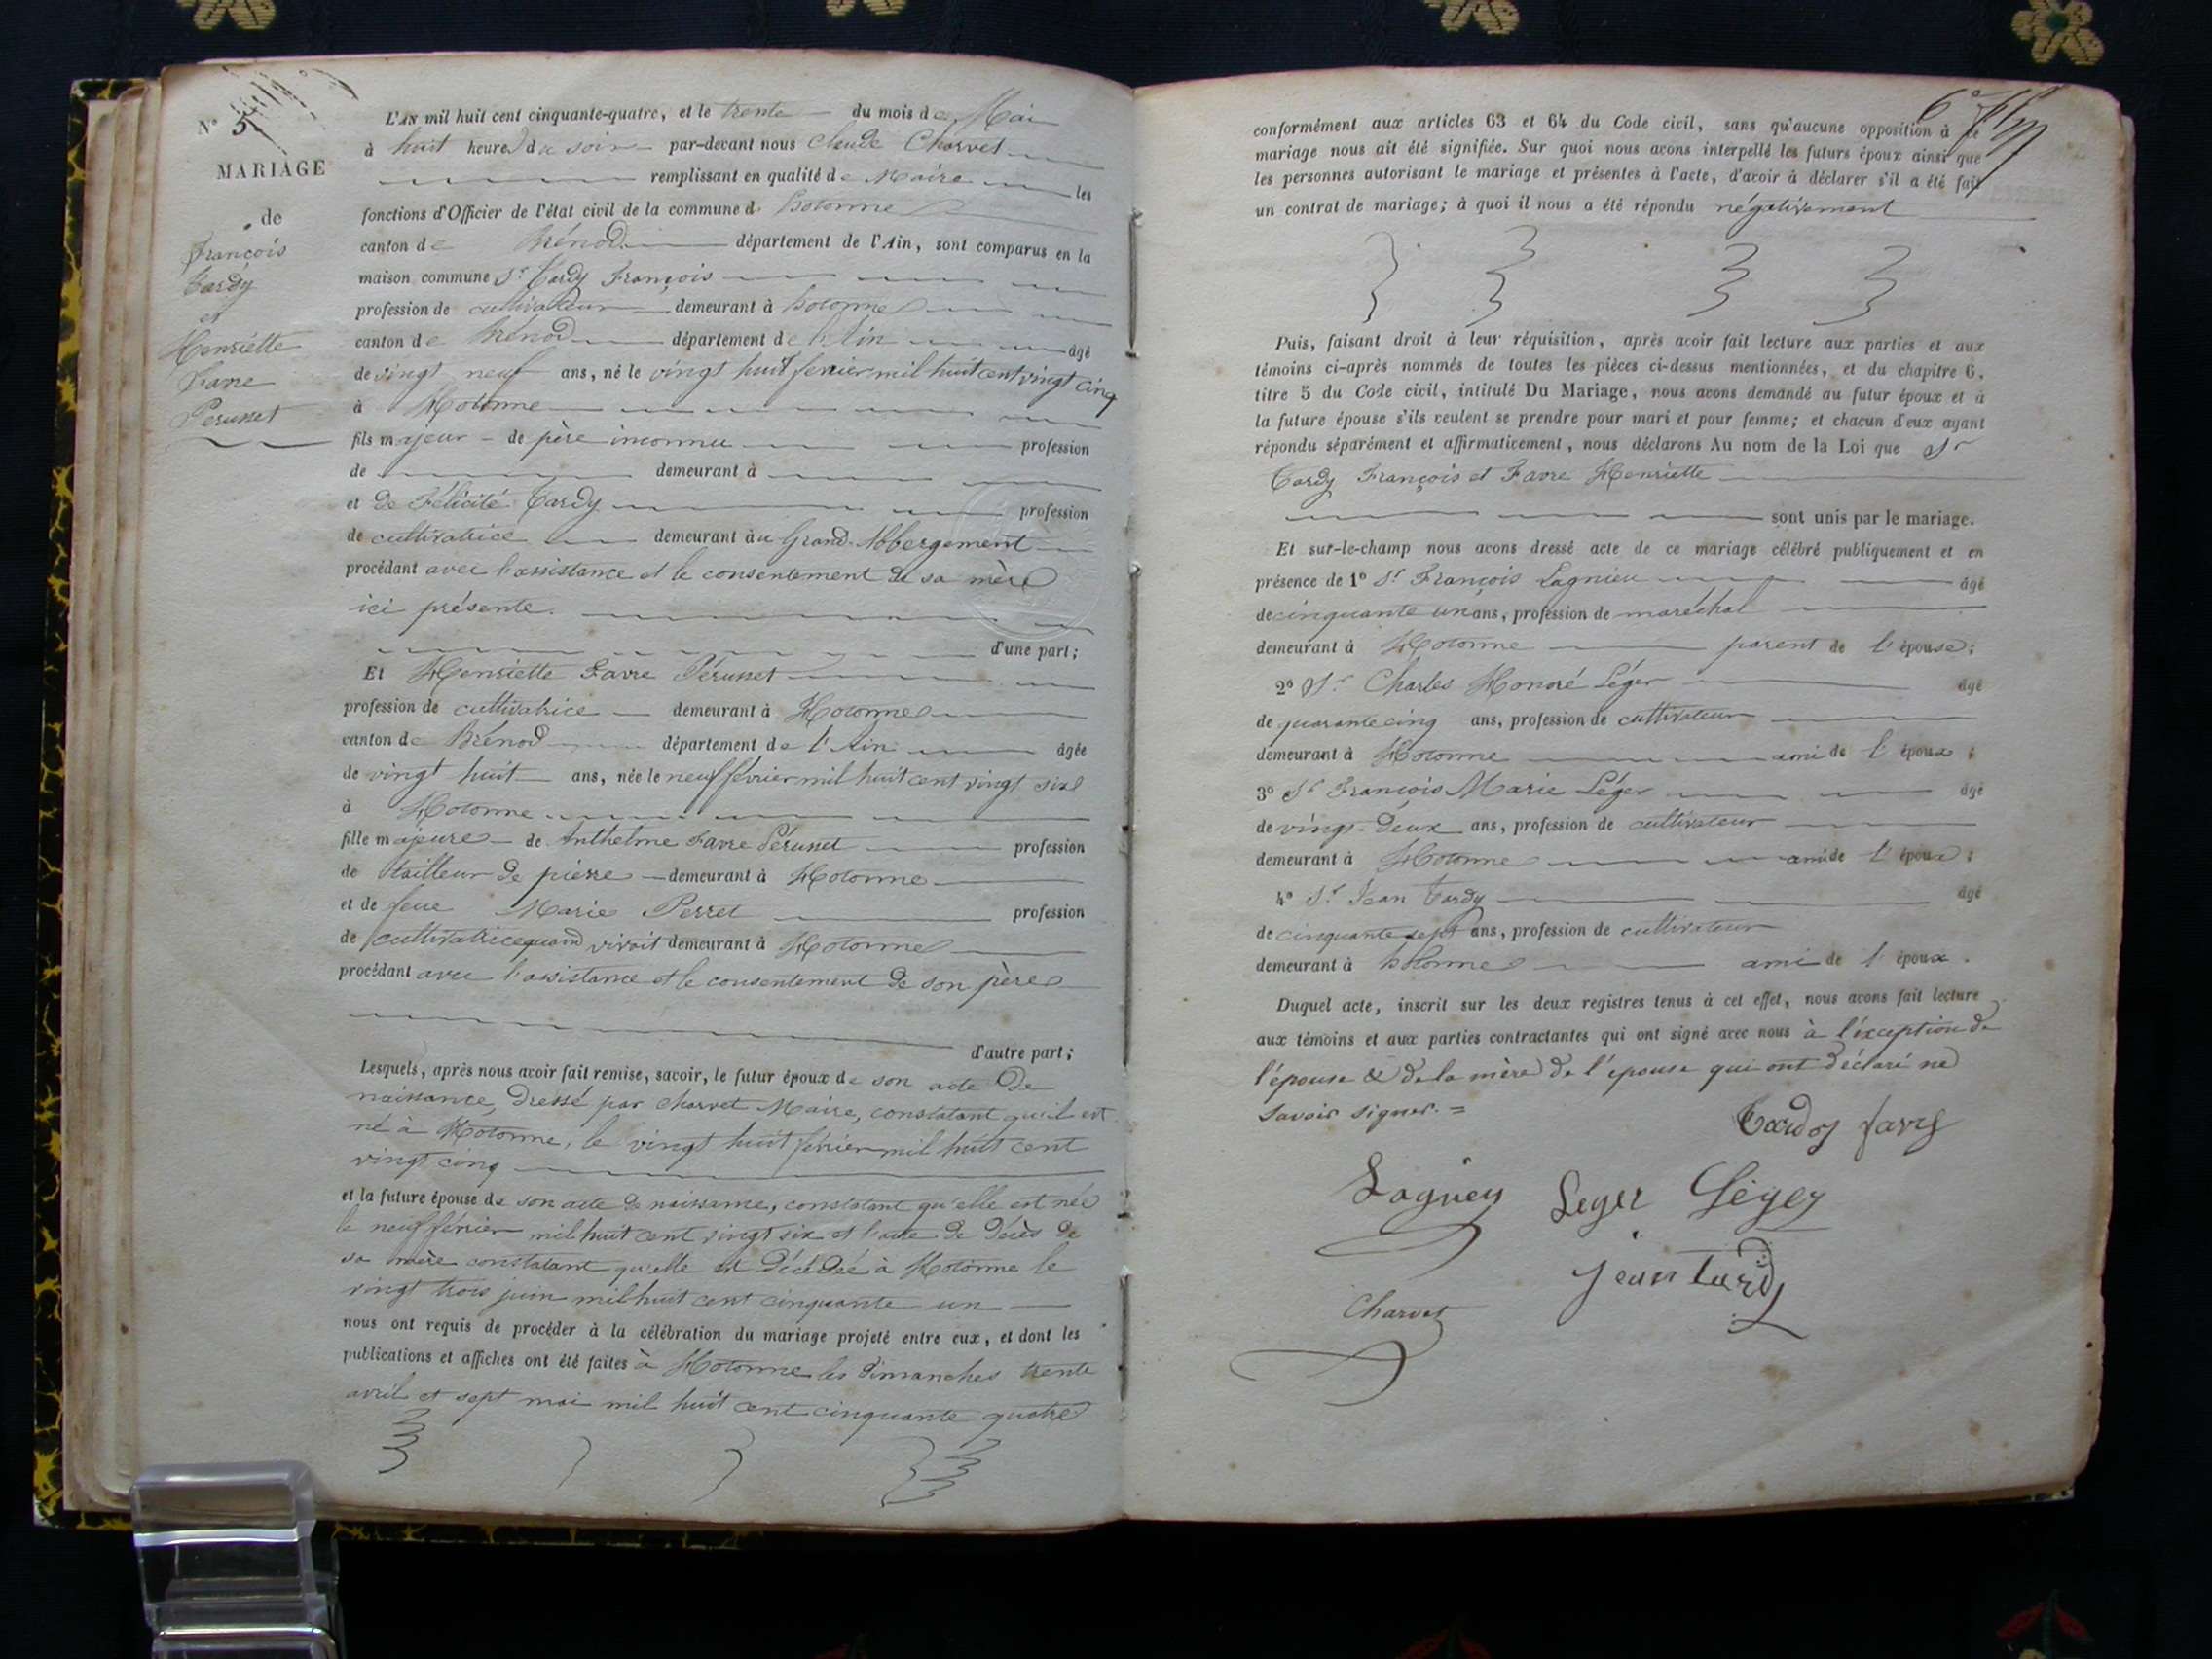 N° 5
MARIAGE
de
François
Tardy
et
Henriette
Favre
Perusset
L'AN mil huit cent cinquante-quatre, et le trente du mois de Mai
à huit heures du soir par-devant nous Claude Charvet
remplissant en qualité de Maire les
fonctions d'Officier de l'état civil de la commune d' hotonne
canton de Brénod département de l'Ain, sont comparus en la
maison commune Sr Tardy François
profession de cultivateur demeurant à hotonne
canton de Brénod département de l'Ain âgé
de vingt neuf ans, né le vingt huit fevrier mil huit cent vingt cinq
à Hotonne
fils majeur de père inconnu profession
de demeurant à
et de Félicité Tardy profession
de cultivatrice demeurant au Grand-Abbergement
procédant avec l'assistance et le consentement de sa mère
ici présente.
d'une part;
Et Henriette Favre Pérusset
profession de cultivatrice demeurant à Hotonne
canton de Brénod département de l'Ain âgée
de vingt huit ans, née le neuf février mil huit cent vingt six
à Hotonne
fille majeure de Anthelme Favre Pérusset profession
de tailleur de pierre demeurant à Hotonne
et de feue Marie Perret profession
de cultivatrice quand vivoit demeurant à Hotonne
procédant avec l'assistance et le consentement de son père
d'autre part;
Lesquels, après nous avoir fait remise, savoir, le futur époux de son acte de
naissance, dressé par Charvet Maire, constatant qu'il est
né à Hotonne, le vingt huit février mil huit cent
vingt cinq
et la future épouse de son acte de naissance, constatant qu'elle est née
le neuf février mil huit cent vingt six et l'acte de décès de
sa mère constatant qu'elle est décédée à Hotonne le
vingt trois juin mil huit cent cinquante un
nous ont requis de procéder à la célébration du mariage projeté entre eux, et dont les
publications et affiches ont été faites à Hotonne les dimanches trente
avril et sept mai mil huit cent cinquante quatre
6e
conformément aux articles 63 et 64 du Code civil, sans qu'aucune opposition à ce
mariage nous ait été signifiée. Sur quoi nous avons interpellé les futurs époux ainsi que
les personnes autorisant le mariage et présentes à l'acte, d'avoir à déclarer s'il a été fait
un contrat de mariage; à quoi il nous a été répondu négativement
Puis, faisant droit à leur réquisition, après avoir fait lecture aux parties et aux
témoins ci-après nommés de toutes les pièces ci-dessus mentionnées, et du chapitre 6,
titre 5 du Code civil, intitulé Du Mariage, nous avons demandé au futur époux et à
la future épouse s'ils veulent se prendre pour mari et pour femme; et chacun d'eux ayant
répondu séparément et affirmativement, nous déclarons Au nom de la Loi que Sr
Tardy François et Favre Henriette
sont unis par le mariage.
Et sur-le-champ nous avons dressé acte de ce mariage célébré publiquement et en
présence de 1° Sr François Lagnieu âgé
de cinquante un ans, profession de maréchal
demeurant à Hotonne parent de l'épouse;
2° Sr Charles Honoré Léger âgé
de quarante cinq ans, profession de cultivateur
demeurant à Hotonne ami de l'époux;
3° Sr François Marie Léger âgé
de vingt-deux ans, profession de cultivateur
demeurant à Hotonne ami de l'époux;
4° Sr Jean Tardy âgé
de cinquante sept ans, profession de cultivateur
demeurant à hotonne ami de l'époux.
Duquel acte, inscrit sur les deux registres tenus à cet effet, nous avons fait lecture
aux témoins et aux parties contractantes qui ont signé avec nous à l'éxception de
l'épouse & de la mère de l'épouse qui ont déclaré ne
savoir signer. =
Tardy favre
Lagnieu Leger Léger
jean tardy
Charvet